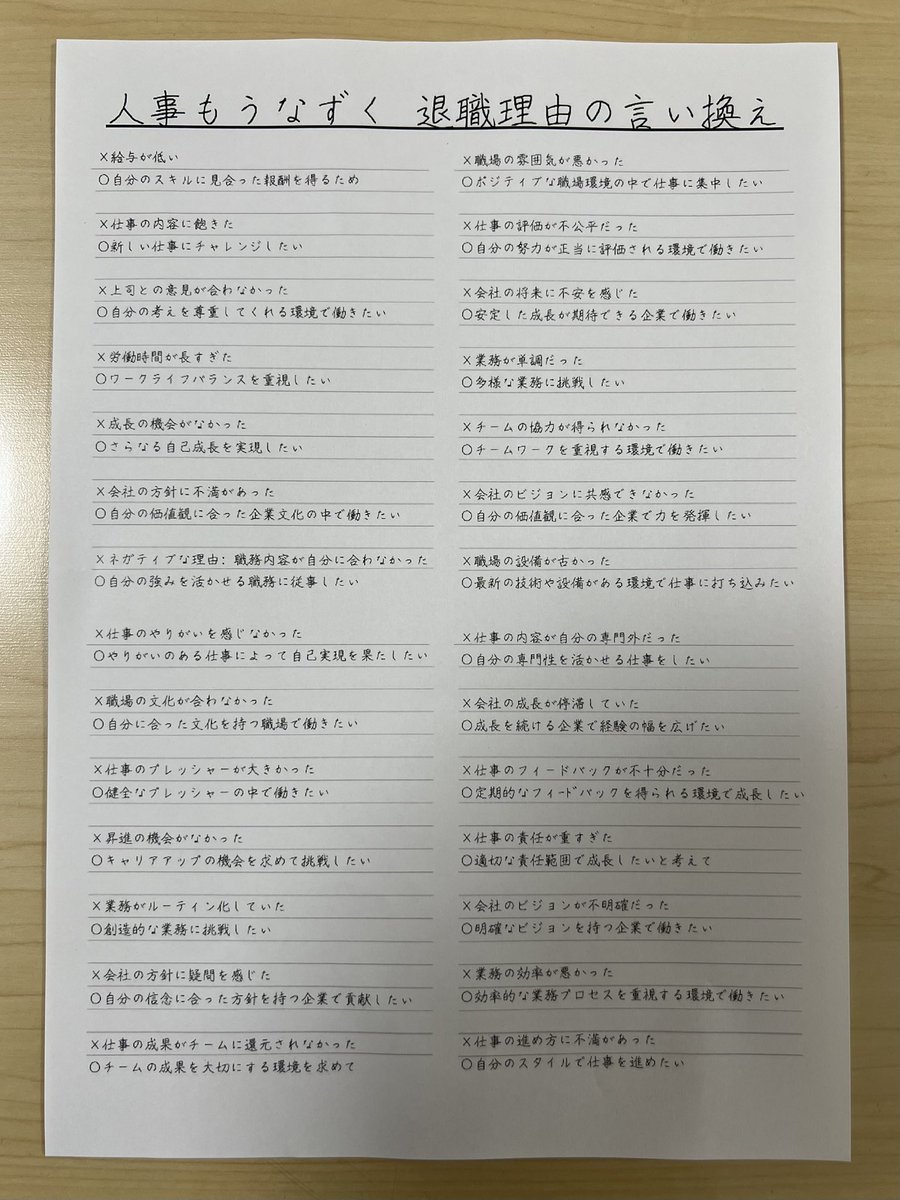 人事もうなずく 退職理由の言い換え
×給与が低い
○自分のスキルに見合った報酬を得るため
×仕事の内容に飽きた
○新しい仕事にチャレンジしたい
×上司との意見が合わなかった
○自分の考えを尊重してくれる環境で働きたい
×労働時間が長すぎた
○ワークライフバランスを重視したい
×成長の機会がなかった
○さらなる自己成長を実現したい
×会社の方針に不満があった
○自分の価値観に合った企業文化の中で働きたい
×ネガティブな理由: 職務内容が自分に合わなかった
○自分の強みを活かせる職務に従事したい
×仕事のやりがいを感じなかった
○やりがいのある仕事によって自己実現を果たしたい
×職場の文化が合わなかった
○自分に合った文化を持つ職場で働きたい
×仕事のプレッシャーが大きかった
○健全なプレッシャーの中で働きたい
×昇進の機会がなかった
○キャリアアップの機会を求めて挑戦したい
×業務がルーティン化していた
○創造的な業務に挑戦したい
×会社の方針に疑問を感じた
○自分の信念に合った方針を持つ企業で貢献したい
×仕事の成果がチームに還元されなかった
○チームの成果を大切にする環境を求めて
×職場の雰囲気が悪かった
○ポジティブな職場環境の中で仕事に集中したい
×仕事の評価が不公平だった
○自分の努力が正当に評価される環境で働きたい
×会社の将来に不安を感じた
○安定した成長が期待できる企業で働きたい
×業務が単調だった
○多様な業務に挑戦したい
×チームの協力が得られなかった
○チームワークを重視する環境で働きたい
×会社のビジョンに共感できなかった
○自分の価値観に合った企業で力を発揮したい
×職場の設備が古かった
○最新の技術や設備がある環境で仕事に打ち込みたい
×仕事の内容が自分の専門外だった
○自分の専門性を活かせる仕事をしたい
×会社の成長が停滞していた
○成長を続ける企業で経験の幅を広げたい
×仕事のフィードバックが不十分だった
○定期的なフィードバックを得られる環境で成長したい
×仕事の責任が重すぎた
○適切な責任範囲で成長したいと考えて
×会社のビジョンが不明確だった
○明確なビジョンを持つ企業で働きたい
×業務の効率が悪かった
○効率的な業務プロセスを重視する環境で働きたい
×仕事の進め方に不満があった
○自分のスタイルで仕事を進めたい